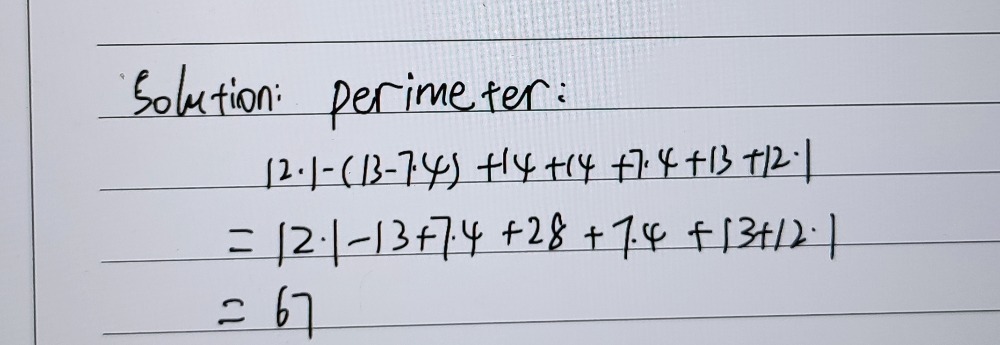 Solution: perimeter:
12.1-(13-7.4)+14+14+7.4+13+12.1
=12.1-13+7.4+28+7.4+13+12.1
=67